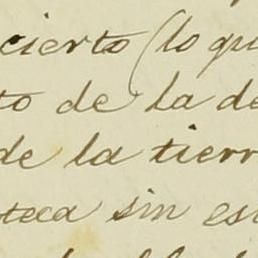 cierto (lo qu
to de la de
de la tierr
teca sin es